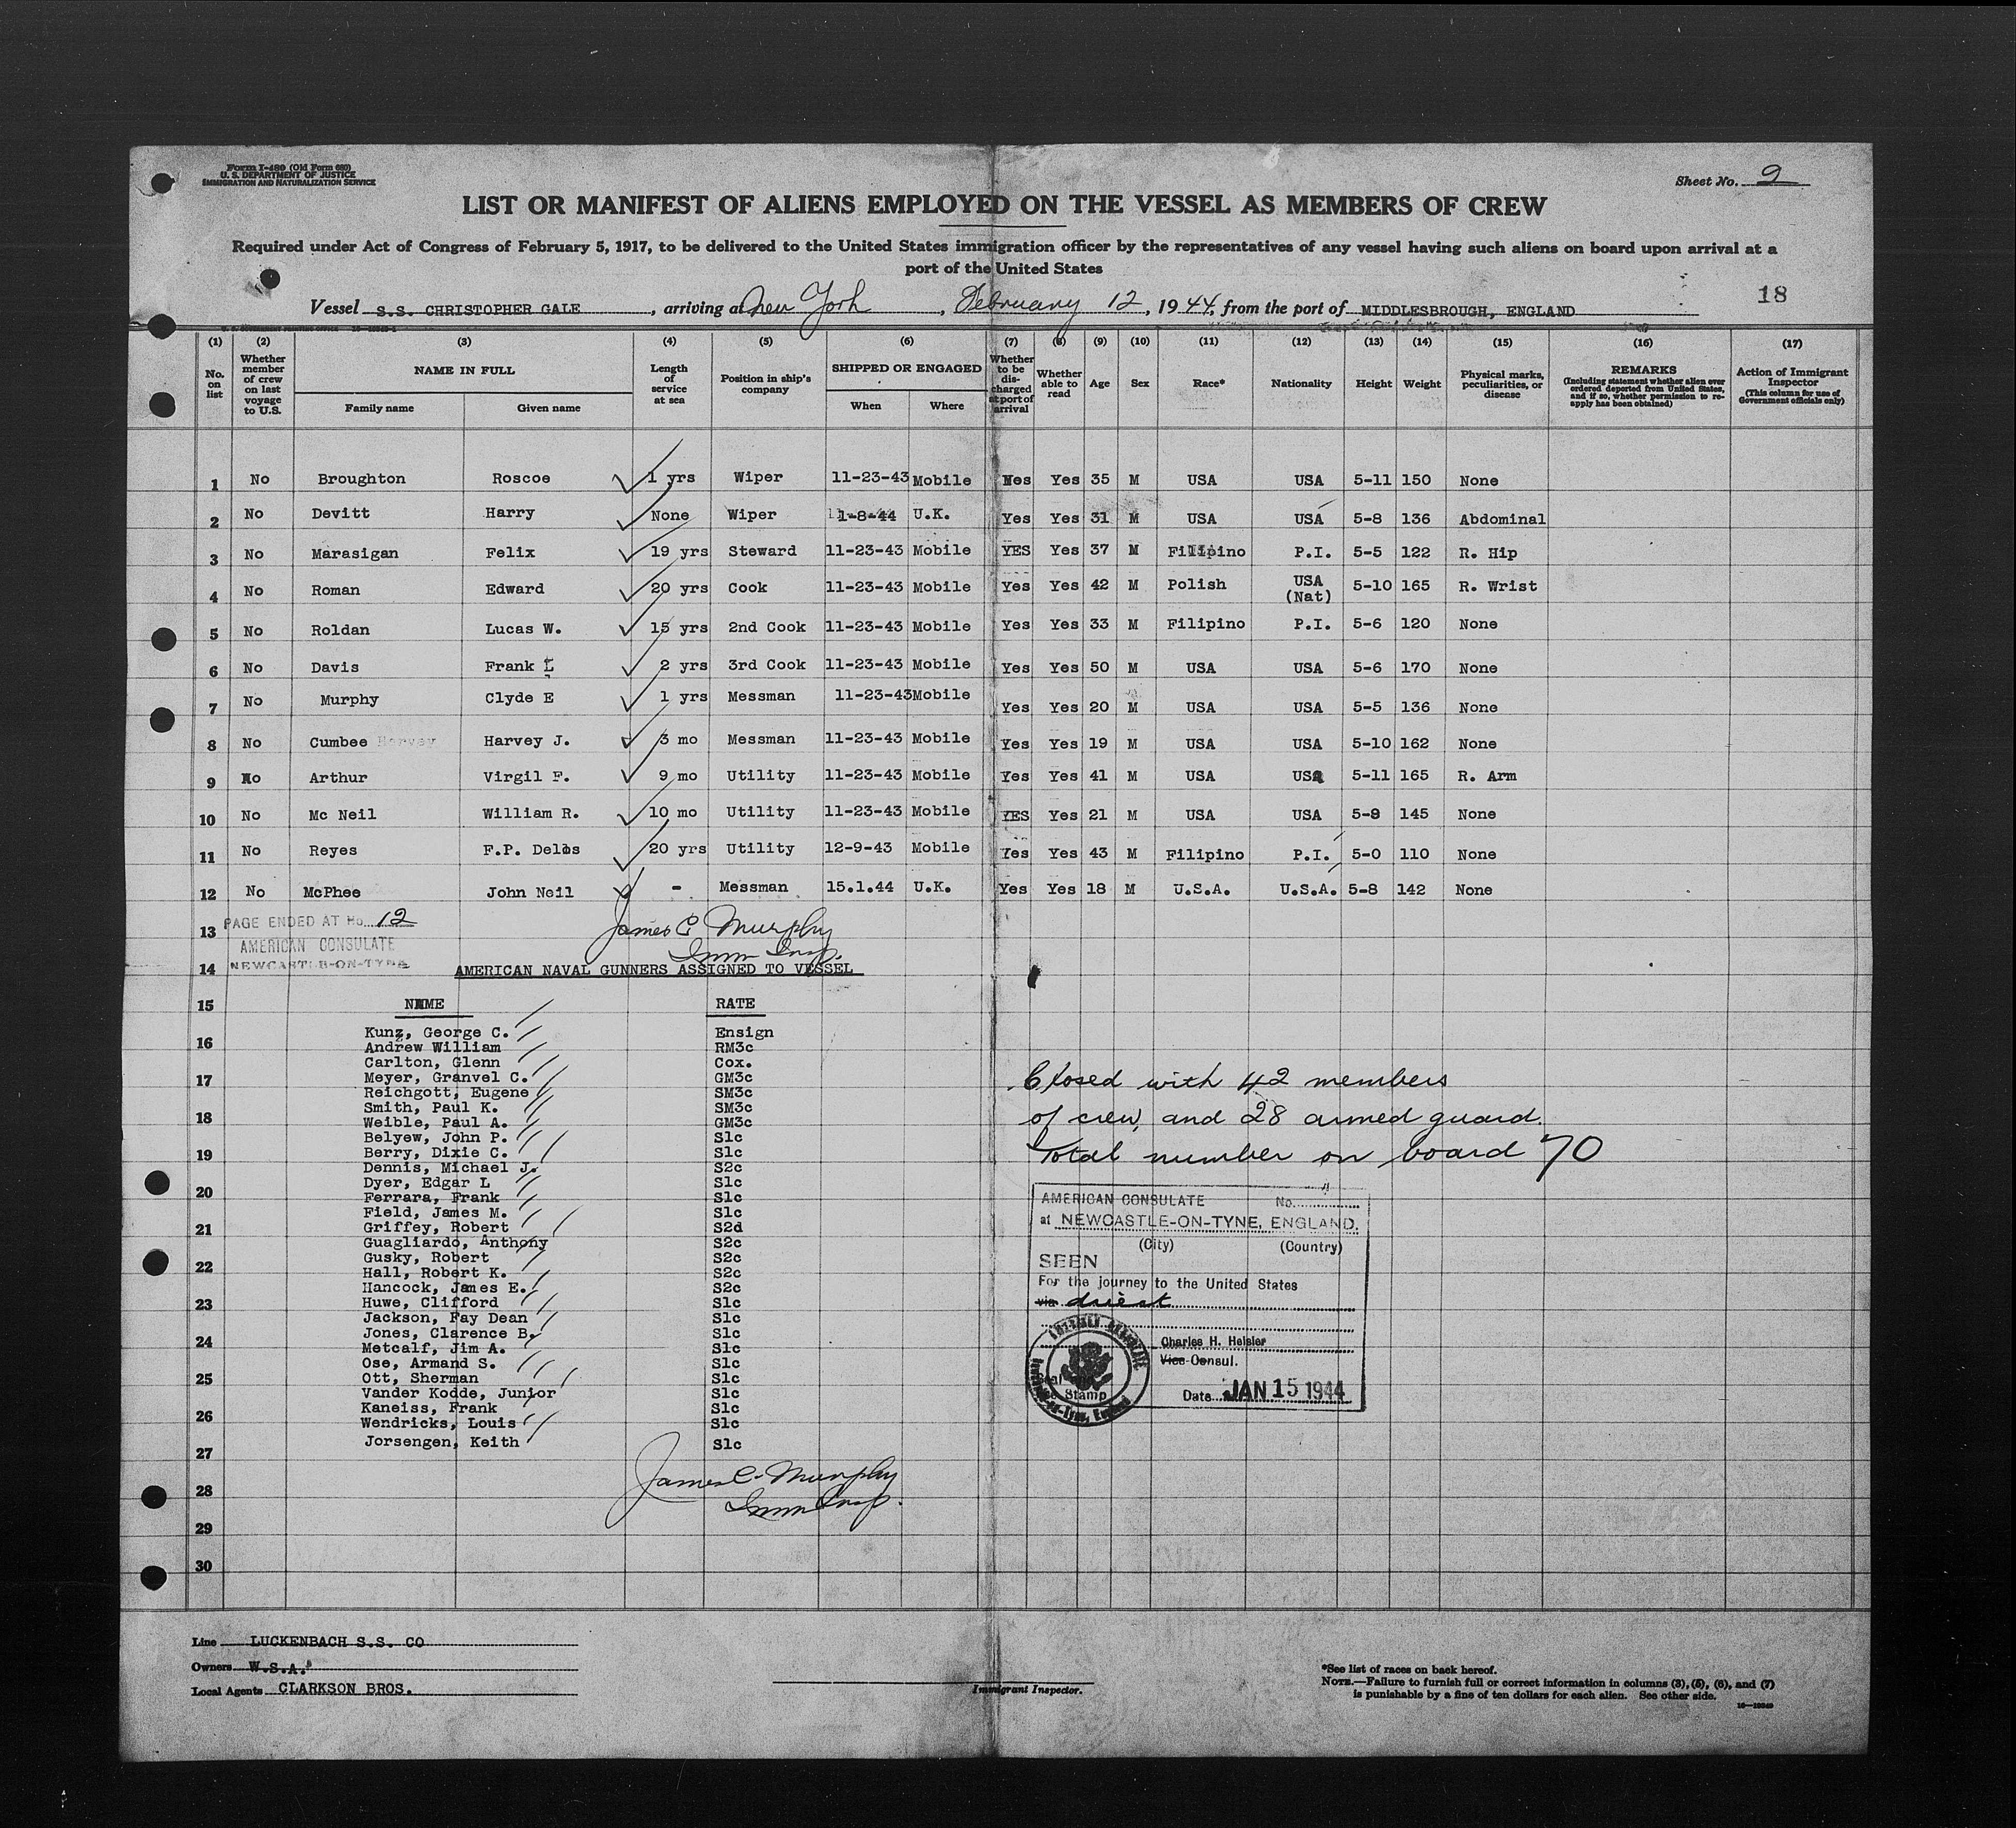 Form I-489 (Old Form 680)
U. S. DEPARTMENT OF JUSTICE
IMMIGRATION AND NATURALIZATION SERVICE
Sheet No. 2
LIST OR MANIFEST OF ALIENS EMPLOYED ON THE VESSEL AS MEMBERS OF CREW
Required under Act of Congress of February 5, 1917, to be delivered to the United States immigration officer by the representatives of any vessel having such aliens on board upon arrival at a
port of the United States
18
Vessel S.S. CHRISTOPHER GALE, arriving at New York, February 12, 1944, from the port of MIDDLESBROUGH, ENGLAND
(1) (2) (3) (4) (5) (6) (7) (8) (9) (10) (11) (12) (13) (14) (15) (16) (17)
No. on list
Whether member of crew on last voyage to U.S.
NAME IN FULL
Family name Given name
Length of service at sea
Position in ship's company
SHIPPED OR ENGAGED
When Where
Whether to be discharged at port of arrival
Whether able to read
Age
Sex
Race*
Nationality
Height
Weight
Physical marks, peculiarities, or disease
REMARKS
(Including statement whether alien ever ordered deported from United States, and if so, whether permission to re-apply has been obtained)
Action of Immigrant Inspector
(This column for use of Government officials only)
1 No Broughton Roscoe 1 yrs Wiper 11-23-43 Mobile Yes Yes 35 M USA USA 5-11 150 None
2 No Devitt Harry None Wiper 1-8-44 U.K. Yes Yes 31 M USA USA 5-8 136 Abdominal
3 No Marasigan Felix 19 yrs Steward 11-23-43 Mobile YES Yes 37 M Filipino P.I. 5-5 122 R. Hip
4 No Roman Edward 20 yrs Cook 11-23-43 Mobile Yes Yes 42 M Polish USA (Nat) 5-10 165 R. Wrist
5 No Roldan Lucas W. 15 yrs 2nd Cook 11-23-43 Mobile Yes Yes 33 M Filipino P.I. 5-6 120 None
6 No Davis Frank L 2 yrs 3rd Cook 11-23-43 Mobile Yes Yes 50 M USA USA 5-6 170 None
7 No Murphy Clyde E 1 yrs Messman 11-23-43 Mobile Yes Yes 20 M USA USA 5-5 136 None
8 No Cumbee Harvey J. 3 mo Messman 11-23-43 Mobile Yes Yes 19 M USA USA 5-10 162 None
9 No Arthur Virgil F. 9 mo Utility 11-23-43 Mobile Yes Yes 41 M USA USA 5-11 165 R. Arm
10 No Mc Neil William R. 10 mo Utility 11-23-43 Mobile YES Yes 21 M USA USA 5-8 145 None
11 No Reyes F.P. Delos 20 yrs Utility 12-9-43 Mobile Yes Yes 43 M Filipino P.I. 5-0 110 None
12 No McPhee John Neil - Messman 15.1.44 U.K. Yes Yes 18 M U.S.A. U.S.A. 5-8 142 None
13 PAGE ENDED AT No. 12
AMERICAN CONSULATE
NEWCASTLE-ON-TYNE
James C Murphy
Imm Insp.
14 AMERICAN NAVAL GUNNERS ASSIGNED TO VESSEL
15 NAME RATE
Kunz, George C. Ensign
16 Andrew William RM3c
Carlton, Glenn Cox.
17 Meyer, Granvel C. GM3c
Reichgott, Eugene SM3c
Smith, Paul K. SM3c
18 Weible, Paul A. GM3c
Belyew, John P. S1c
19 Berry, Dixie C. S1c
Dennis, Michael J. S2c
Dyer, Edgar L S1c
20 Ferrara, Frank S1c
Field, James M. S1c
21 Griffey, Robert S2d
Guagliardo, Anthony S2c
Gusky, Robert S2c
22 Hall, Robert K. S2c
Hancock, James E. S2c
23 Huwe, Clifford S1c
Jackson, Fay Dean S1c
Jones, Clarence B. S1c
24 Metcalf, Jim A. S1c
Ose, Armand S. S1c
25 Ott, Sherman S1c
Vander Kodde, Junior S1c
Kaneiss, Frank S1c
26 Wendricks, Louis S1c
Jorsengen, Keith S1c
27
28
29
30
James C. Murphy
Imm Insp.
Closed with 42 members
of crew, and 28 armed guard.
Total number on board 70
AMERICAN CONSULATE No.
at NEWCASTLE-ON-TYNE, ENGLAND.
(City) (Country)
SEEN
For the journey to the United States
via direct
Charles H. Heisler
Vice Consul.
Seal
Stamp
Date JAN 15 1944
Line LUCKENBACH S.S. CO
Owners W.S.A.
Local Agents CLARKSON BROS.
Immigrant Inspector.
*See list of races on back hereof.
NOTE.—Failure to furnish full or correct information in columns (3), (5), (6), and (7)
is punishable by a fine of ten dollars for each alien. See other side.